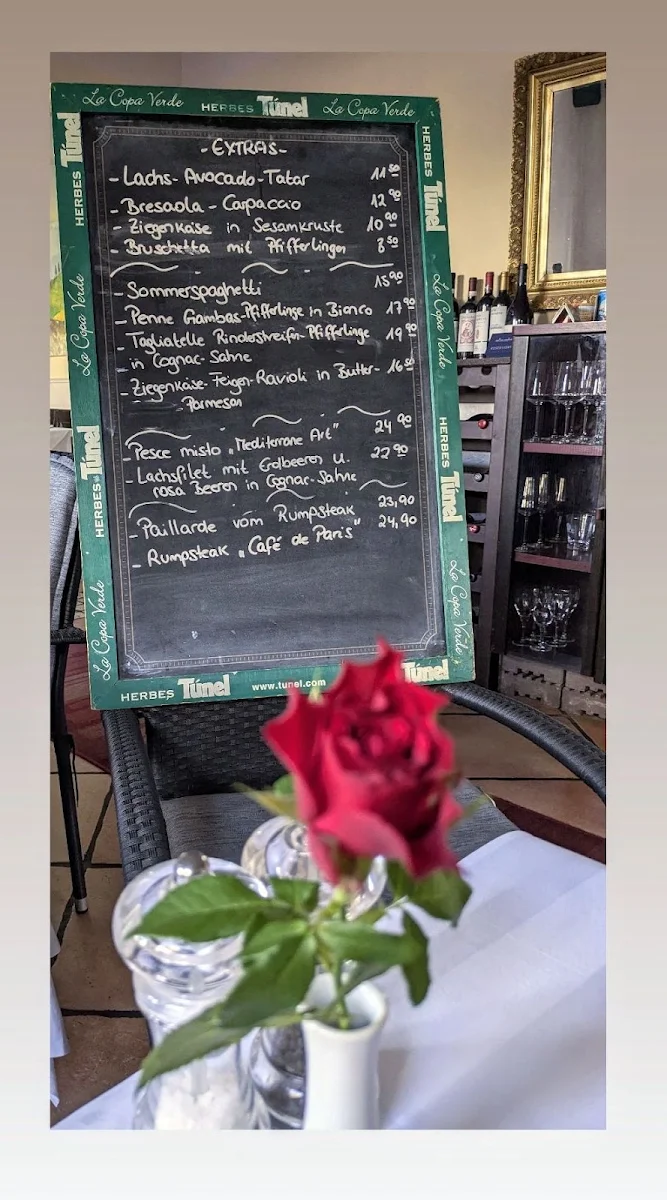 La Copa Verde HERBES Túnel La Copa Verde
HERBES Túnel
La Copa Verde
HERBES Túnel
La Copa Verde
-EXTRAS-
- Lachs-Avocado-Tatar 11⁵⁰
- Bresaola - Carpaccio 12⁹⁰
- Ziegenkäse in Sesamkruste 10⁹⁰
- Bruschetta mit Pfifferlingen 8⁵⁰
- Sommerspaghetti 15⁹⁰
- Penne Gambas-Pfifferlinge in Bianco 17⁹⁰
- Tagliatelle Rinderstreifen-Pfifferlinge 19⁹⁰
in Cognac-Sahne
- Ziegenkäse-Feigen-Ravioli in Butter- 16⁵⁰
Parmesan
- Pesce misto „Mediterrane Art" 24⁹⁰
- Lachsfilet mit Erdbeeren u. 22⁹⁰
rosa Beeren in Cognac-Sahne
- Paillarde vom Rumpsteak 23,90
- Rumpsteak „Café de Paris" 24,90
HERBES Túnel
La Copa Verde
HERBES Túnel
La Copa Verde
HERBES Túnel www.tunel.com Túnel